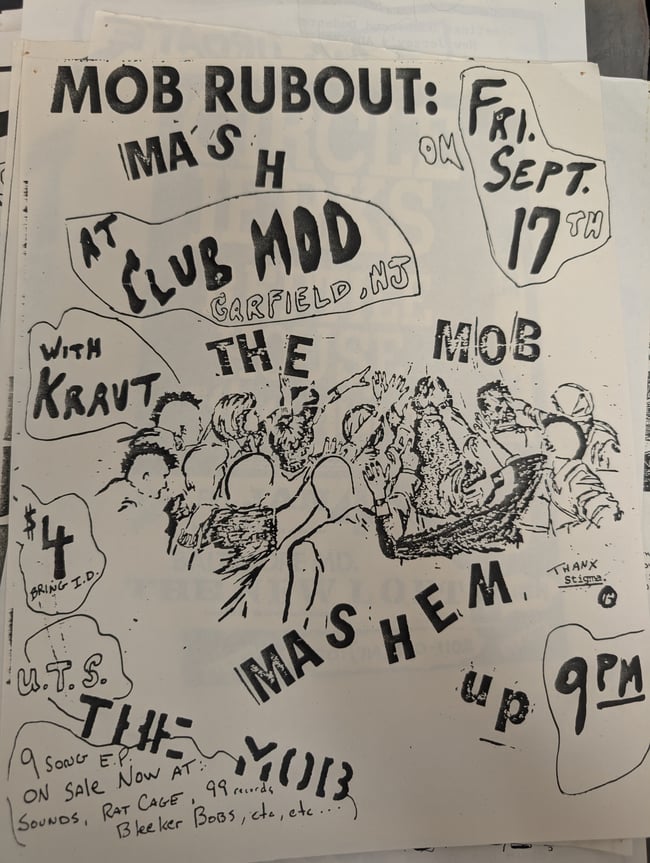 MOB RUBOUT:
MASH
ON
FRI.
SEPT.
17TH
AT
CLUB MOD
GARFIELD, NJ
WITH
KRAUT
THE MOB
$4
BRING I.D.
THANX
Stigma.
MASHEM.
up
9PM
U.T.S.
THE MOB
9 SONG E.P.
ON SALE NOW AT:
SOUNDS, RAT CAGE, 99 records
Bleeker BOBS, etc, etc...